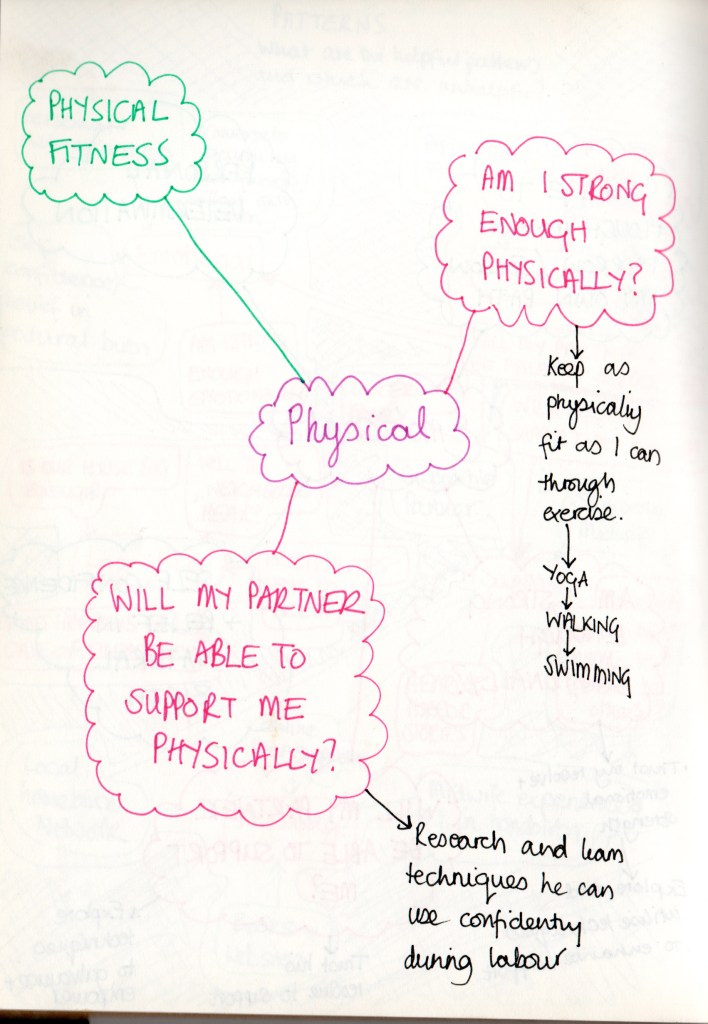 PHYSICAL
FITNESS
AM I STRONG
ENOUGH
PHYSICALLY?
Keep as
physically
fit as I can
through
exercise.
YOGA
WALKING
SWIMMING
Physical
WILL MY PARTNER
BE ABLE TO
SUPPORT ME
PHYSICALLY?
Research and learn
techniques he can
use confidently
during labour